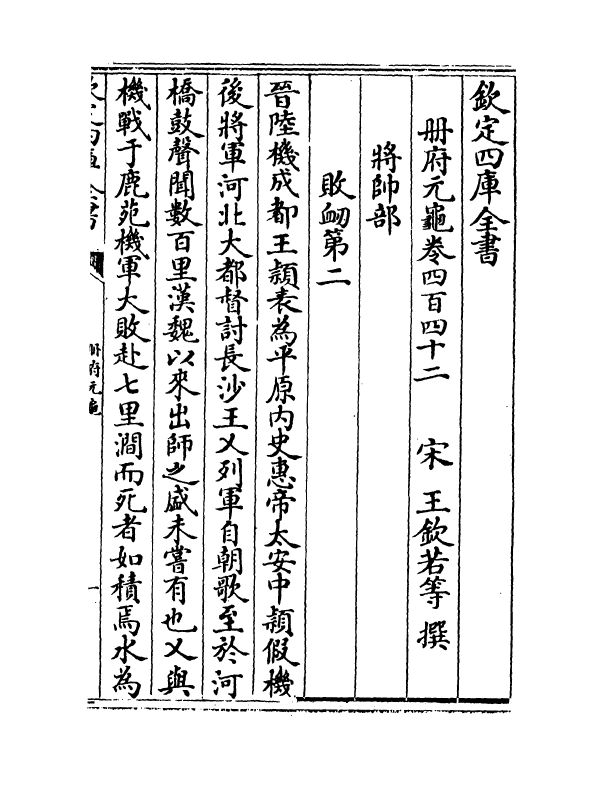 欽定四庫全書
冊府元龜卷四百四十二 宋 王欽若等 撰
將帥部
敗衂第二
晉陸機成都王頴表為平原内史惠帝太安中頴假機
後將軍河北大都督討長沙王乂列軍自朝歌至於河
橋鼓聲聞數百里漢魏以來出師之盛未嘗有也乂與
機戰于鹿苑機軍大敗赴七里澗而死者如積焉水為
冊府元龜
一